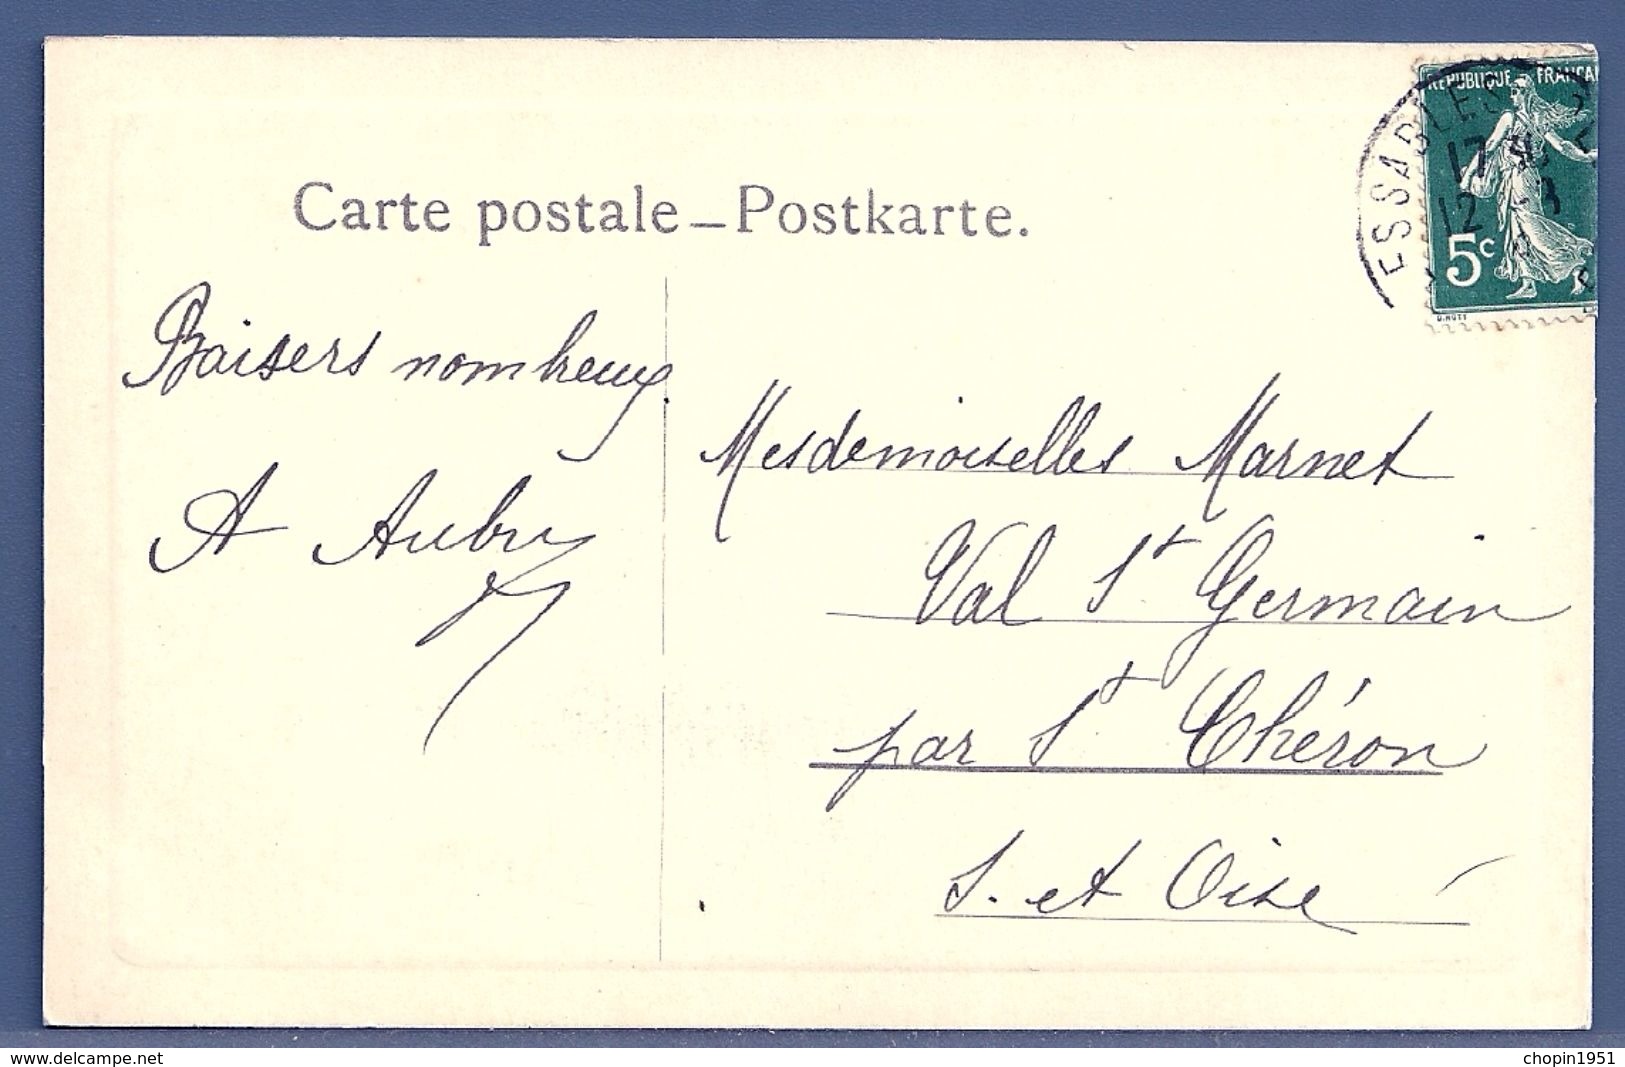 Carte postale – Postkarte.
REPUBLIQUE FRANCAI
ESSARLES
17
12 - 3
5c
Baisers nombreux
A Aubry
Mesdemoiselles Marnet
Val St Germain
par St Chéron
S. et Oise
www.delcampe.net
chopin1951